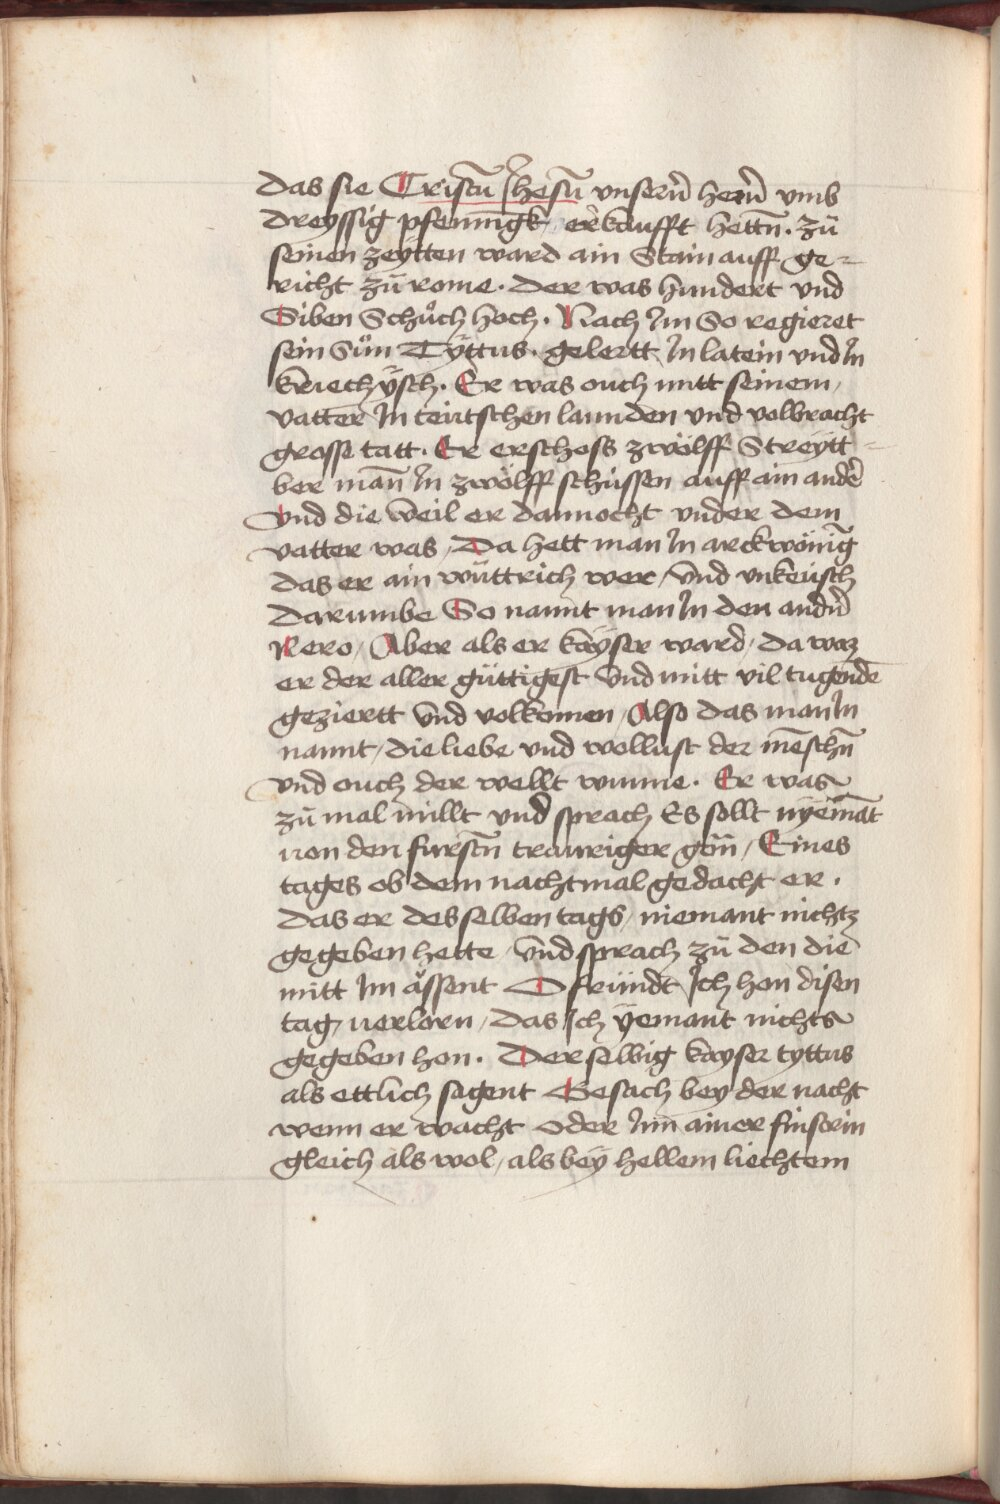 das sie Cristū Jhesū vnserñ herñ vmb
dreyssig pfenningk erkaufft hettñ. zů
seinen zeytten ward ain Stain auff ge=
richt zů rome. der was hundert vnd
Siben Schůch hoch. Nach Jm So regieret
sein Sůn Tÿttus. gelertt Jn latein vnd Jn
kriechÿsch. Er was ouch mitt seinem
vatter Jn teutschen lannden vnd volbracht
grosse tatt. Er erschoss zwölff Streytt=
ber man̄ Jn zwölff schüssen auff ain andē
vnd die weil er dannocht vnder dem
vatter was, Da hett man Jn arckwönig
das er ain wüttrich wer, vnd vnkeüsch
darumbe So nannt man Jn den andñ
Nero, Aber als er kayser ward, da waz
er der aller güttigest vnd mitt vil tugendē
geziertt vnd volkomen, Also das man Jn
nannt, die liebe vnd wollust der mēschñ
vnd ouch der wellt wunne. Er was
zů mal millt vnd sprach Es sollt nyemāt
von den furstñ trauriger gön, Eines
tages ob dem nachtmal gedacht er.
das er desselben tags, niemant nichtz
gegeben hette, vnd sprach zů den die
mitt Jm ässent O fründt Jch hon disen
tag, verlorn, das Jch yemant nichts
gegeben hon. Derselbig kayser tyttus
als ettlich sagent Gesach bey der nacht
wenn er wacht oder Jnn ainer finsrin
gleich als wol, als bey hellem liechtem